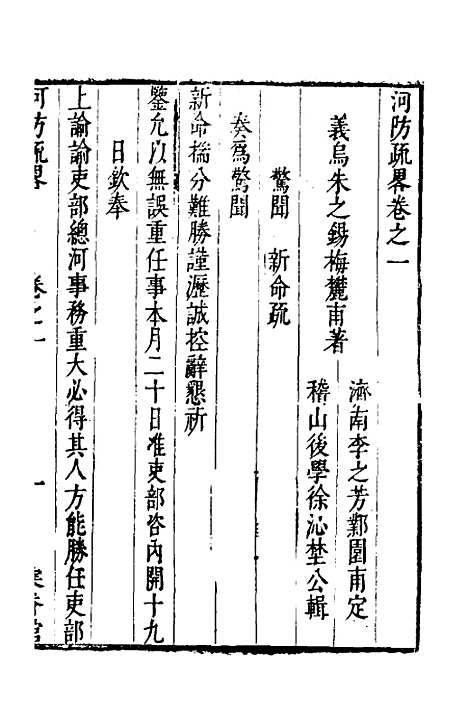 河防疏畧卷之一
義烏朱之錫梅麓甫著
濟南李之芳鄴園甫定
稽山後學徐沁埜公輯
驚聞 新命疏
奏爲驚聞
新命揣分難勝謹瀝誠控辭懇祈
鑒允以無誤重任事本月二十日准吏部咨內開十九
日欽奉
上諭諭吏部總河事務重大必得其人方能勝任吏部
河防疏畧 卷之一 一